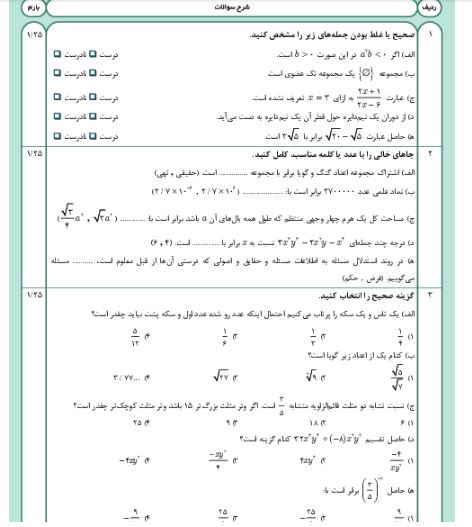 ردیف شرح سوالات بارم
۱ صحیح یا غلط بودن جمله‌های زیر را مشخص کنید. ۱/۲۵
الف) اگر a²b < ۰ در این صورت b > ۰ است. درست نادرست
ب) مجموعه {∅} یک مجموعه تک عضوی است. درست نادرست
ج) عبارت (۲x+۱)/(۲x−۶) به ازای x = ۳ تعریف نشده است. درست نادرست
د) از دوران یک نیم‌دایره حول قطر آن یک نیم‌دایره به دست می‌آید. درست نادرست
ه) حاصل عبارت √۲۰ − √۵ برابر با ۳√۵ است. درست نادرست
۲ جاهای خالی را با عدد یا کلمه مناسب، کامل کنید. ۱/۲۵
الف) اشتراک مجموعه اعداد گنگ و گویا برابر با مجموعه .............. است. (حقیقی ، تهی)
ب) نماد علمی عدد ۲۷۰۰۰۰۰ برابر است با: .................... (۲/۷×۱۰⁶ ، ۲/۷×۱۰⁻⁶)
ج) مساحت کل یک هرم چهار وجهی منتظم که طول همه یال‌های آن a باشد برابر است با ............ (√۳a² ، √۳/۴ a²)
د) درجه چند جمله‌ای ۳x²y⁴ − ۲x³y − x⁴ نسبت به x برابر با ............. است. (۴ ، ۶)
ه) در روند استدلال مسئله به اطلاعات مسئله و حقایق و اصولی که درستی آن‌ها از قبل معلوم است، .......... مسئله
می‌گوییم. (فرض ، حکم)
۳ گزینه صحیح را انتخاب کنید. ۱/۲۵
الف) یک تاس و یک سکه را پرتاب می کنیم احتمال اینکه عدد رو شده عدد اول و سکه پشت بیاید چقدر است؟
۱) ۱/۴ ۲) ۱/۳ ۳) ۱/۶ ۴) ۵/۱۲
ب) کدام یک از اعداد زیر گویا است؟
۱) √۵/√۷ ۲) √۹ ۳) √۲۷ ۴) ۳/۷۷...
ج) نسبت تشابه دو مثلث قائم‌الزاویه متشابه ۳/۵ است. اگر وتر مثلث بزرگ‌تر ۱۵ باشد وتر مثلث کوچک‌تر چقدر است؟
۱) ۶ ۲) ۱۸ ۳) ۹ ۴) ۲۵
د) حاصل تقسیم ۳۲x²y⁴ ÷ (−۸)x³y² کدام گزینه است؟
۱) −۴/xy² ۲) ۴xy² ۳) −xy²/۴ ۴) −۴xy²
ه) حاصل (۳/۵)⁻² برابر است با:
۱) ۹ ۲) −۲۵ ۳) ۲۵ ۴) −۹